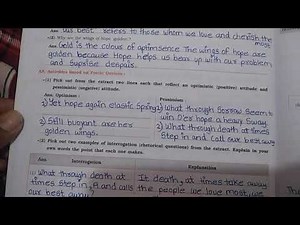 Ans us best refers to those whom we love and cherish the most
(ii) Why are the wings of hope golden?
Ans Gold is the colour of optimsence The wings of hope are
golden because Hope helps us bear up with our problem
and supsise despair.
A4. Activities Based on Poetic Devices :
(i) Pick out from the extract two lines each that reflect an optimistic (positive) attitude and
pessimistic (negative) attitude.
Ans. Optimism : Pessimism :
1) Yet hope again elastic spring 1) What through Sorrow seem to
win O'er hope a heavy sway.
2) Still buoyant are her 2) What through death at times
golden wings. Step in and call our best away
(ii) Pick out two examples of Interrogation (rhetorical questions) from the extract. Explain in your
own words the point that each one makes.
Ans Interrogation Explanation
(1) What through death at It death, at times take away
times step in, A and calls the people we love most, we
our best away?